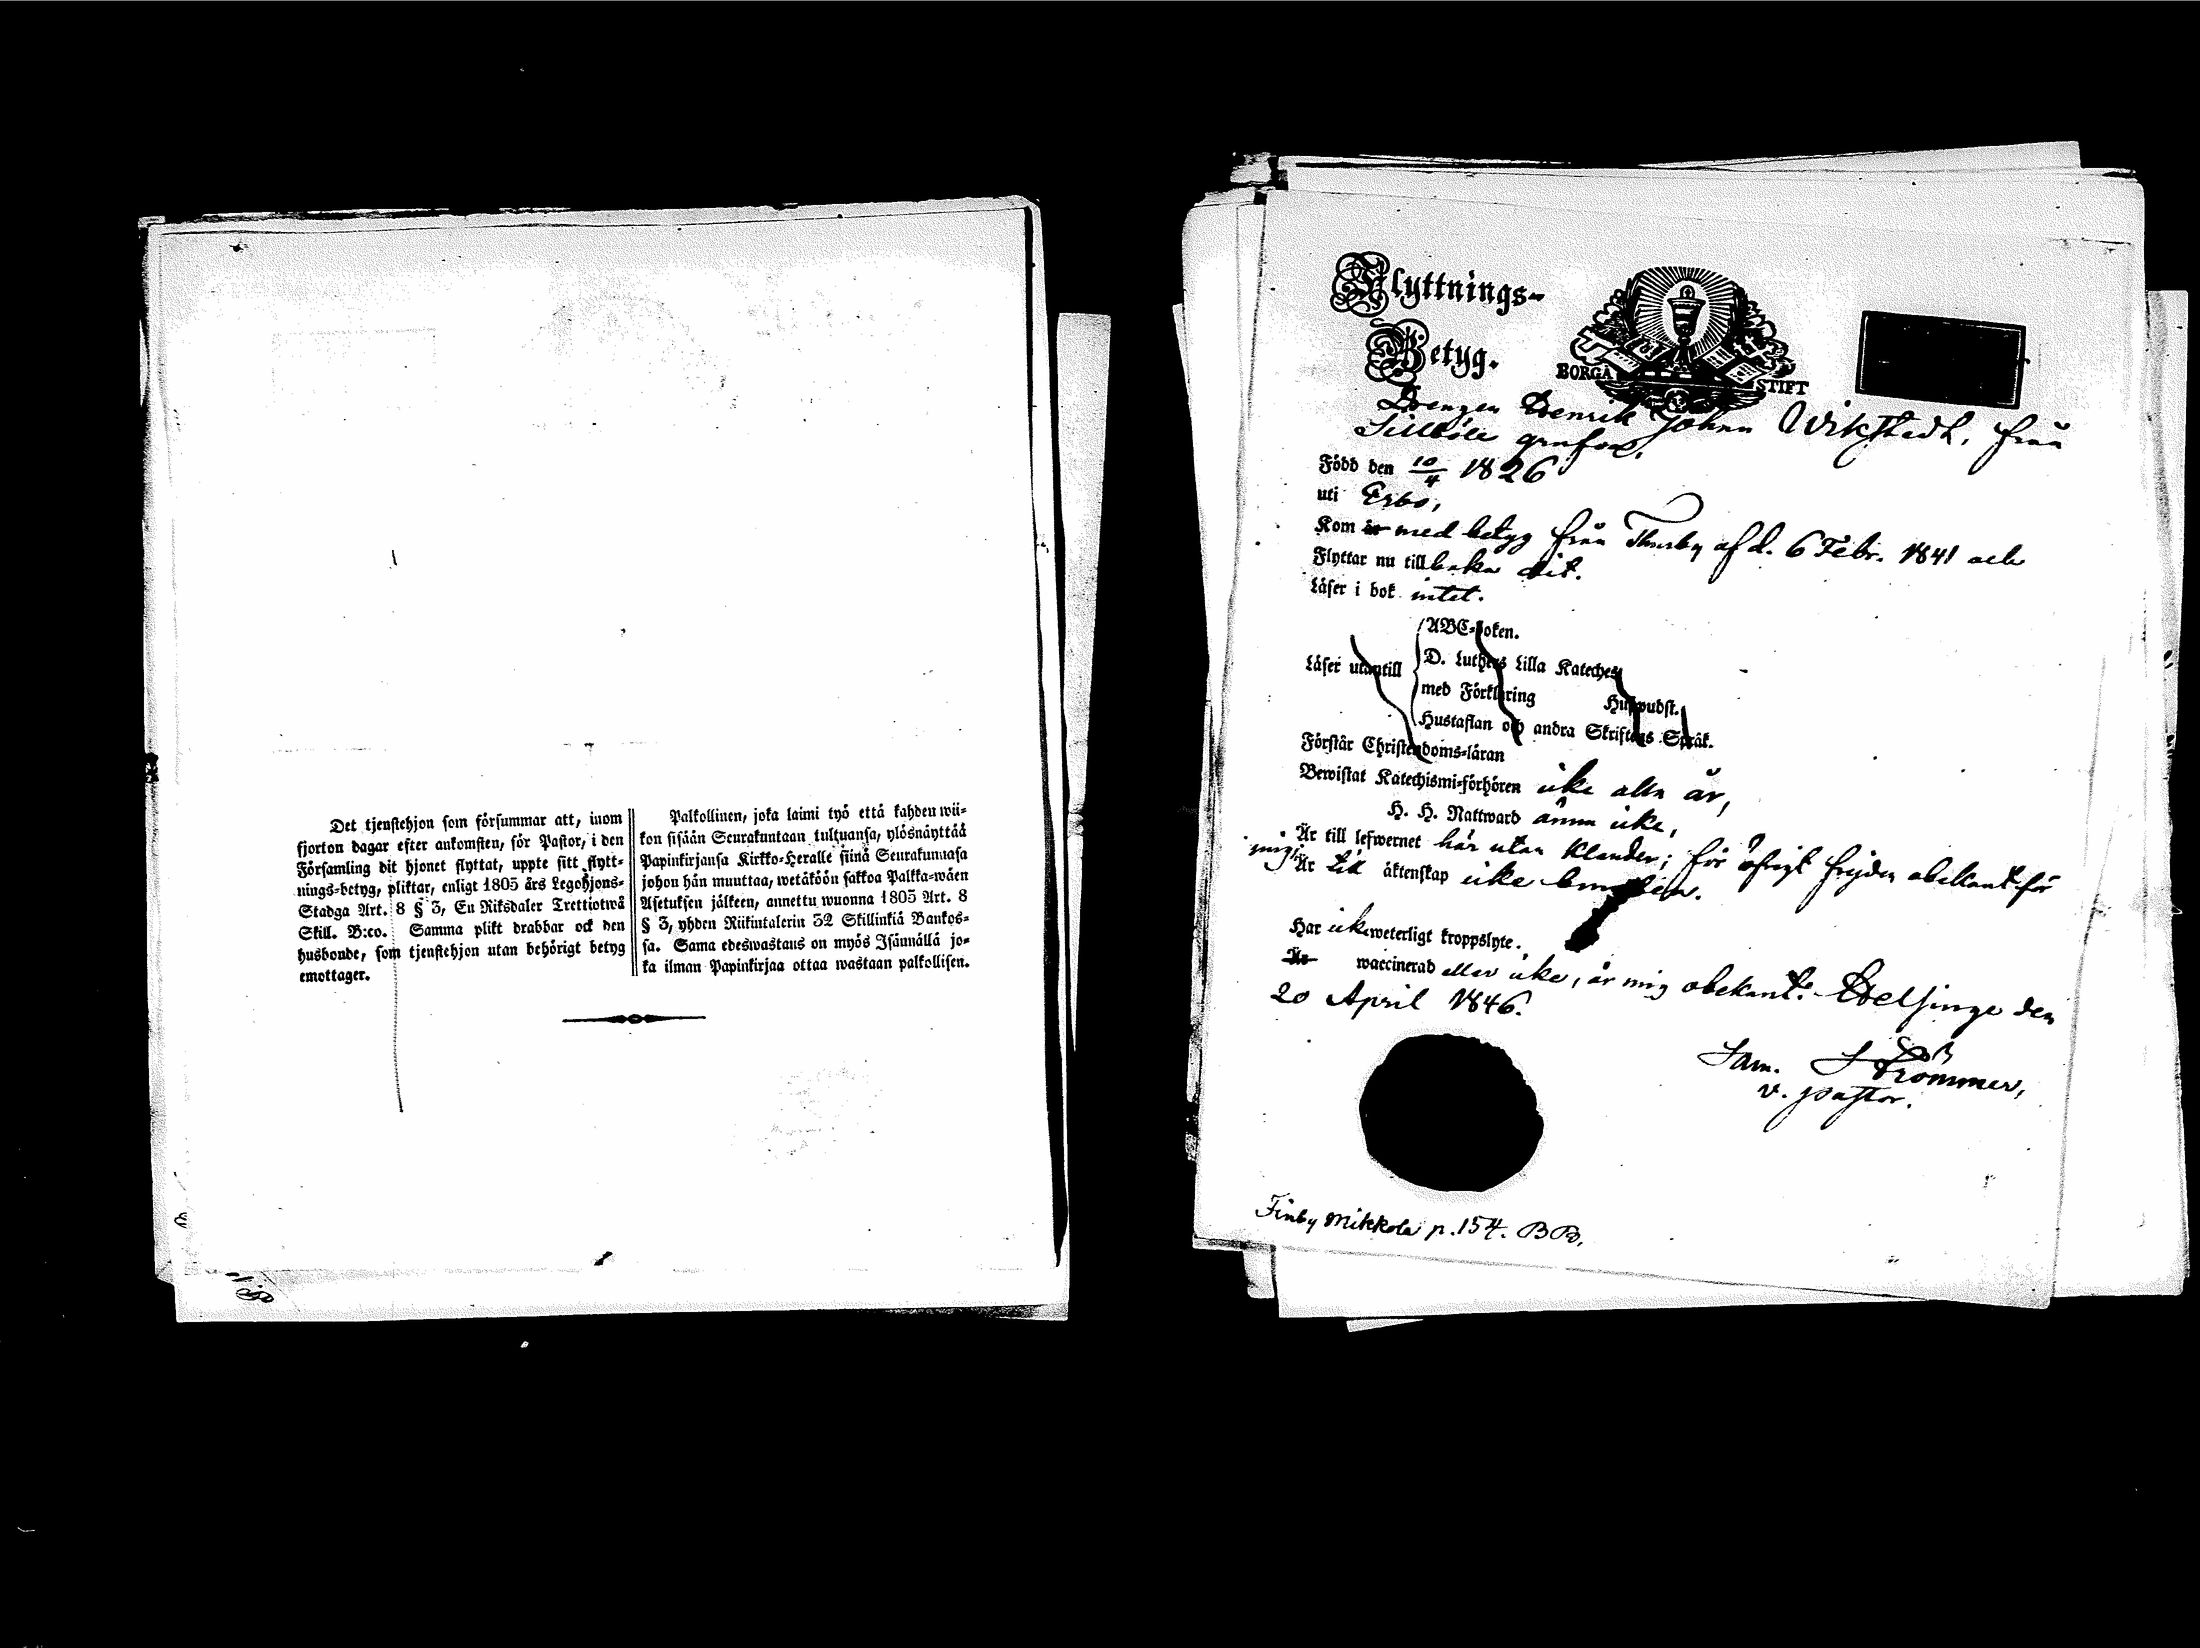 Det tjenstehjon som försummar att, inom
fjorton dagar efter ankomsten, för Pastor, i den
Församling dit hjonet flyttat, uppte sitt flytt-
nings-betyg, pliktar, enligt 1805 års Legohjons-
Stadga Art. 8 § 3, En Riksdaler Trettiotwå
Skill. B:co. Samma plikt drabbar ock den
husbonde, som tjenstehjon utan behörigt betyg
emottager.
Palkollinen, joka laimi työ että kahden wii-
kon sisään Seurakuntaan tultuansa, ylösnäyttää
Papinkirjansa Kirkko-Heralle siinä Seurakunnasa
johon hän muuttaa, wetäköön sakkoa Palkka-wäen
Asetuksen jälkeen, annettu wuonna 1805 Art. 8
§ 3, yhden Riikintalerin 32 Skillinkiä Bankos-
sa. Sama edeswastaus on myös Isännällä jo-
ka ilman Papinkirjaa ottaa wastaan palkollisen.
Flyttnings-
Betyg.
BORGÅ STIFT
Drengen Henrik Johan Wikstedt, från
Sillböle grufva,
Född den 10/4 1826
uti Esbo,
Kom är med betyg från Thusby af d. 6 Febr. 1841 och
Flyttar nu tillbaka dit.
Läser i bok intet.
ABC-boken.
Läser utantill D. Luthers Lilla Kateches
med Förklaring Huswudst.
Hustaflan och andra Skriftens Språk.
Förstår Christendoms-läran
Bewistat Katechismi-förhören icke alla år,
H. H. Nattward ännu icke,
Är till lefwernet här utan klander; för öfrigt frejden obekant för
mig,
Är till äktenskap icke bunden.
Har icke weterligt kroppslyte.
Är waccinerad eller icke, är mig obekant. Helsinge den
20 April 1846.
Sam. Strömmer,
v. pastor.
Finby Mikkola p. 154. BB.